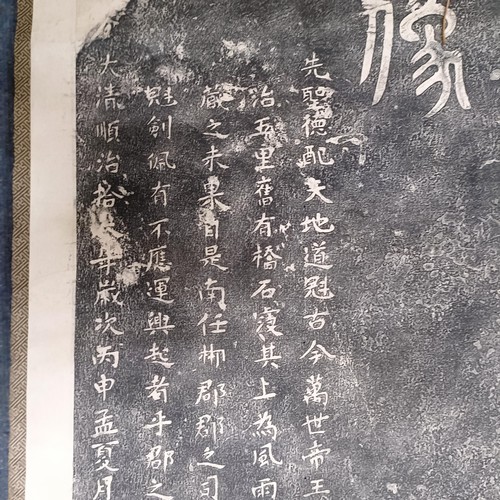 像
先聖德配天地道冠古今萬世帝王
治五里舊有橋石寢其上為風雨
藏之未果自是南任郴郡郡之司
魁劍佩有不應運興起者乎郡之
大清順治拾年歲次丙申孟夏月